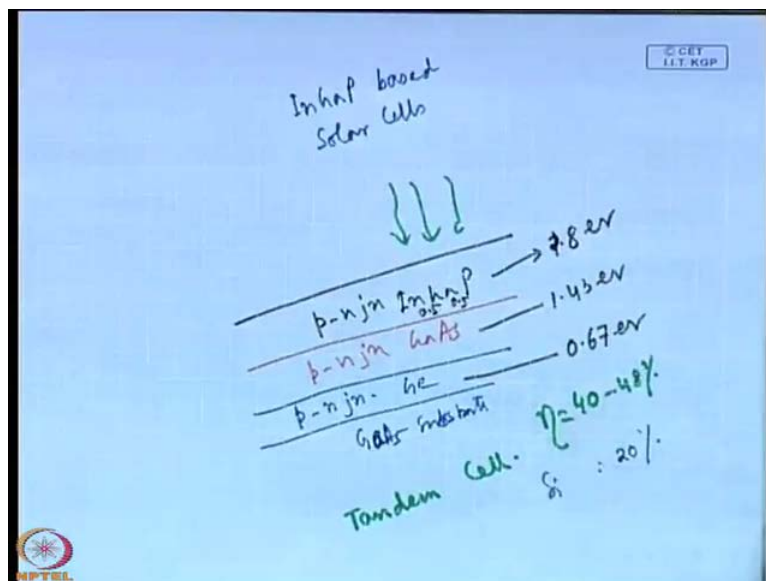 © CET
I.I.T. KGP
InGaP based
Solar Cells
p-n jn In0.5Ga0.5P → 1.8 eV
p-n jn GaAs 1.43 eV
p-n jn- Ge 0.67 eV
GaAs substrate
Tandem Cell. η=40-48%.
Si : 20%.
NPTEL